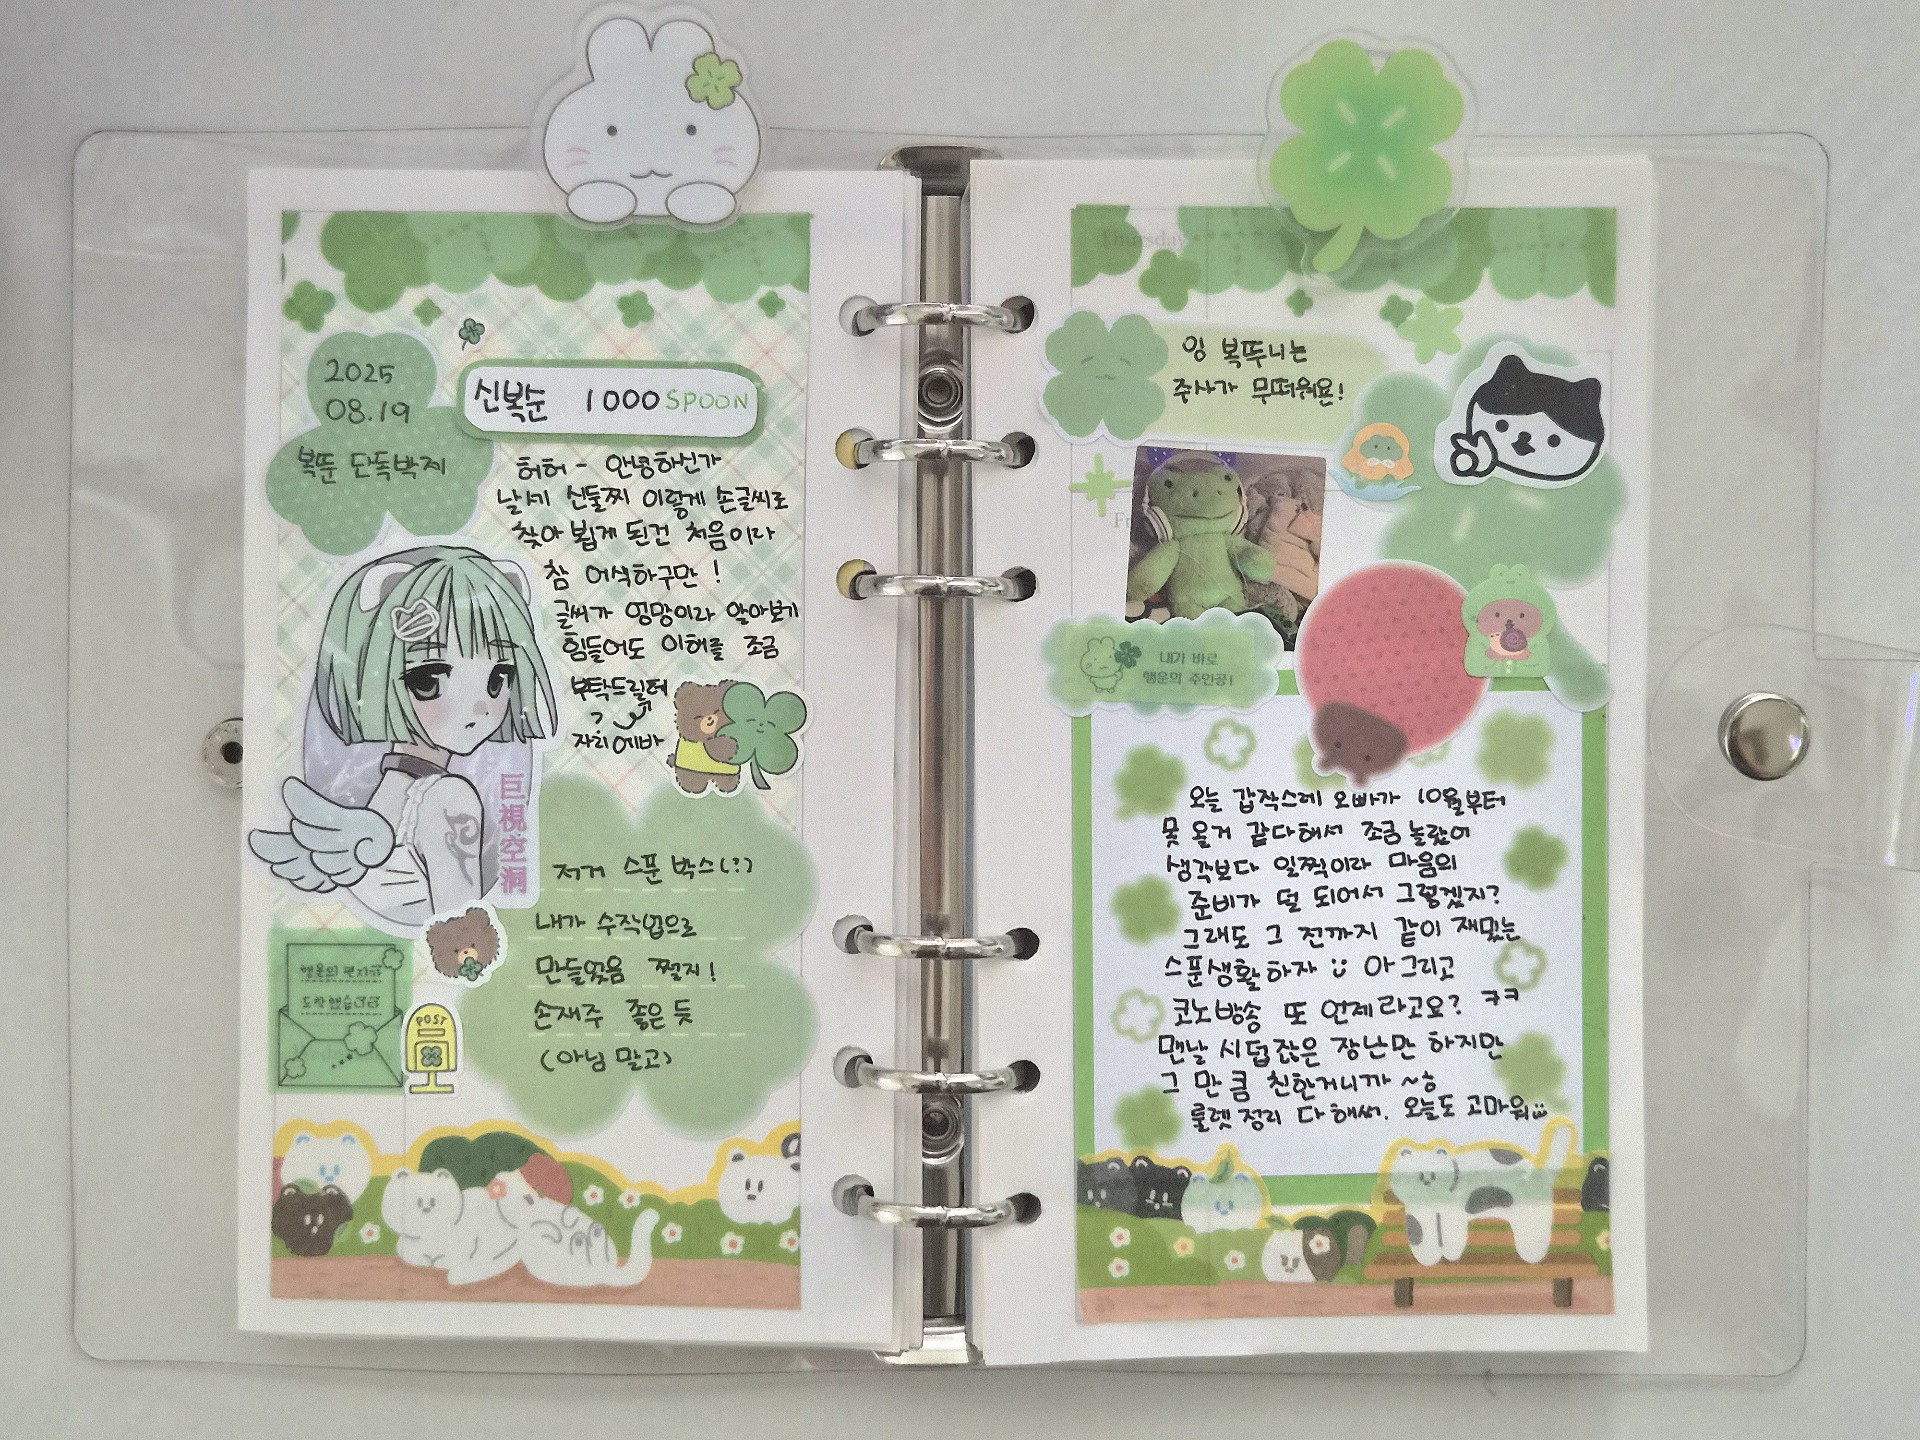 2025
08.19
복뚠 단독박제
신복순 1000 SPOON
허허 - 안녕하신가
날세 신둘찌 이렇게 손글씨로
찾아 뵙게 된건 처음이라
참 어색하구만!
글씨가 엉망이라 알아보기
힘들어도 이해를 조금
부탁드릴테
자리 에바
巨視空洞
저거 스푼 박스(?)
내가 수작업으로
만들었음 쩔지!
손재주 좋은 듯
(아님 말고)
행운의 편지가
도착했습니다
POST
Thursday
잉 복뚜니는
주사가 무떠워욘!
내가 바로
행운의 주인공!
오늘 갑작스레 오빠가 10월부터
못 올거 같다해서 조금 놀랐어
생각보다 일찍이라 마음의
준비가 덜 되어서 그렇겠지?
그래도 그 전까지 같이 재밌는
스푼생활하자 아 그리고
코노방송 또 언제라고요? ㅋㅋ
맨날 시덥잖은 장난만 하지만
그 만큼 친한거니까 ~ㅎ
룰렛 정리 다 해써. 오늘도 고마워